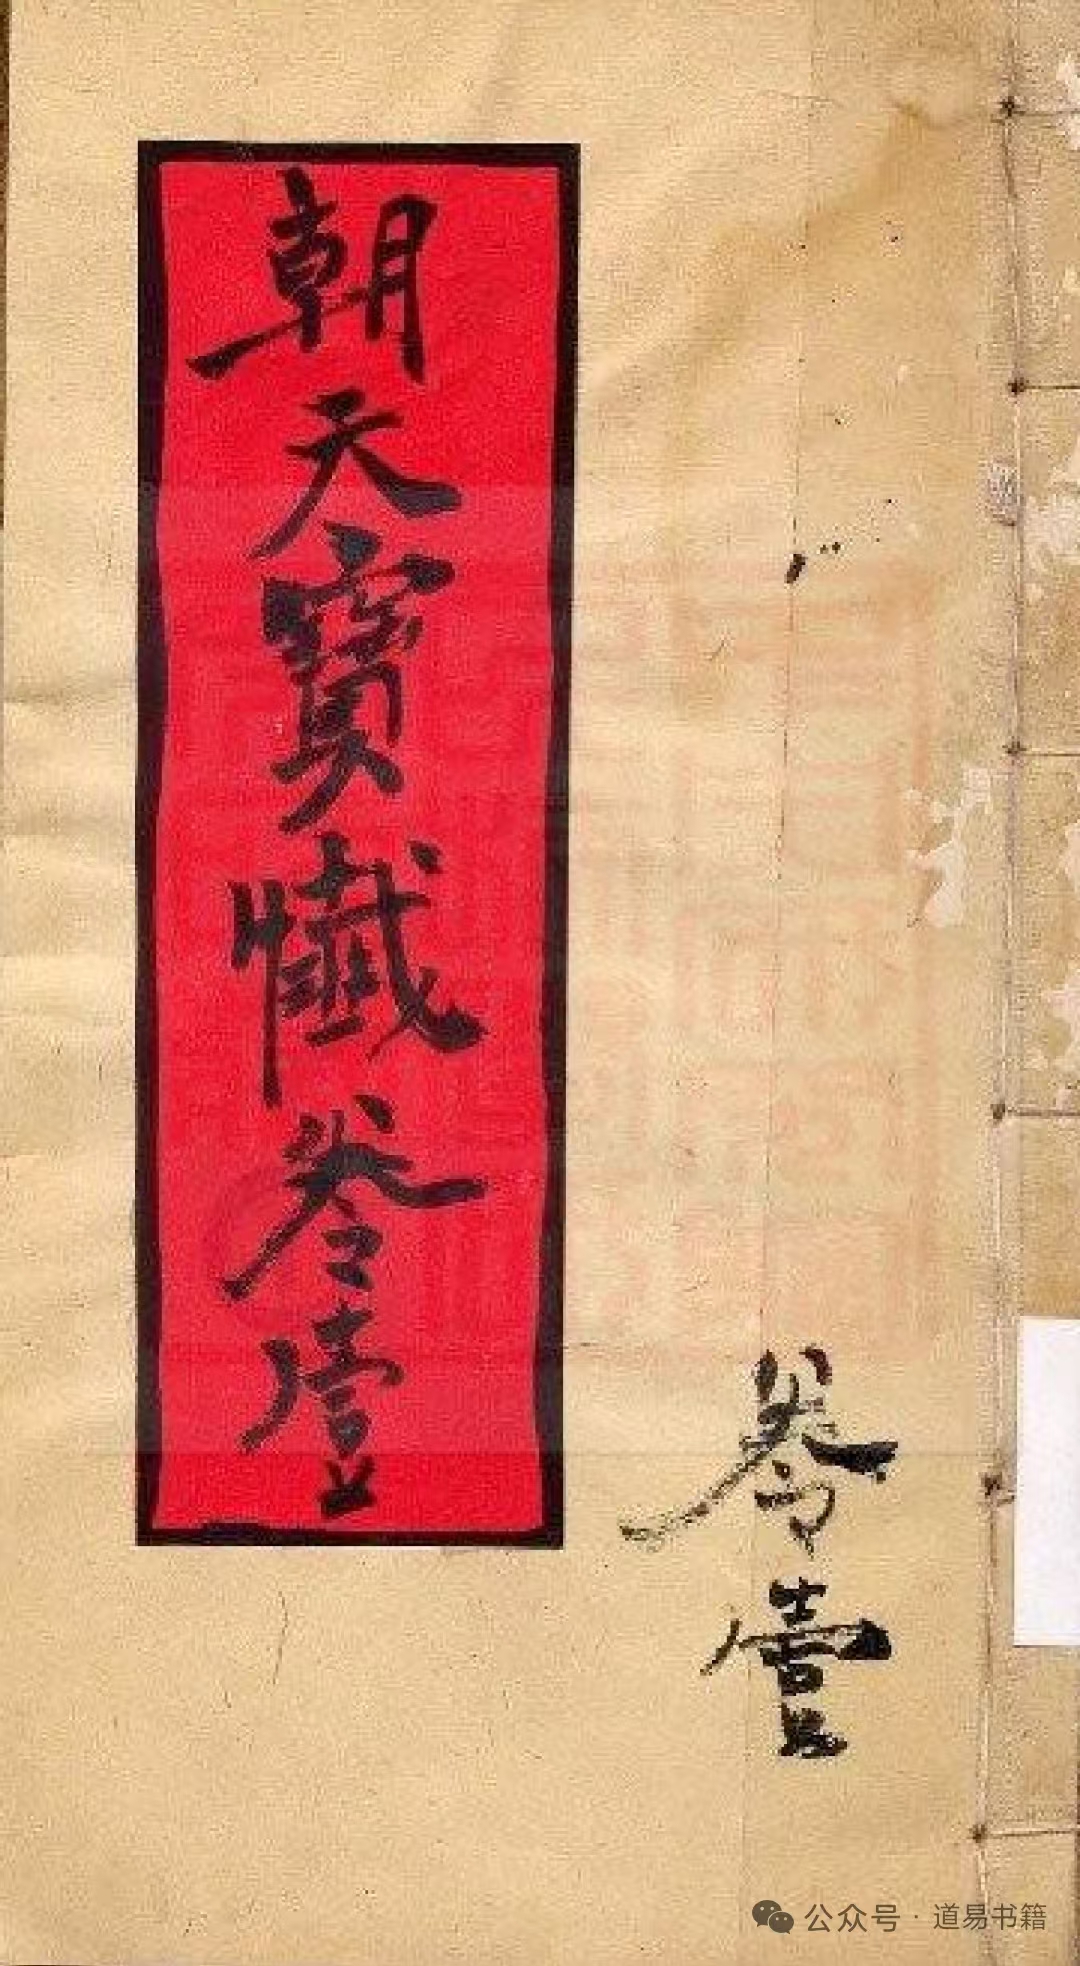 朝天寳懺卷壹
卷壹
公众号·道易书籍